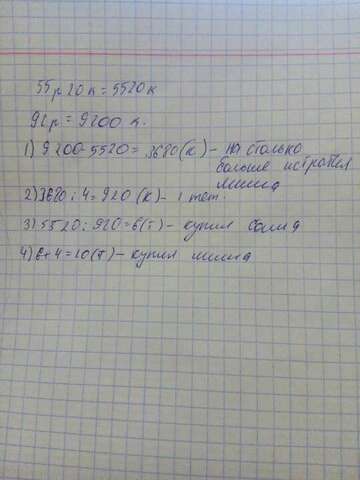 55р 20 к = 5520к
92р = 9200 к.
1) 9200-5520 = 3680 (к) - на столько
больше истратил
миша
2) 3680 : 4 = 920 (к) - 1 тет.
3) 5520 : 920 = 6 (т) - купил Саша
4) 6+4 = 10 (т) - купил миша